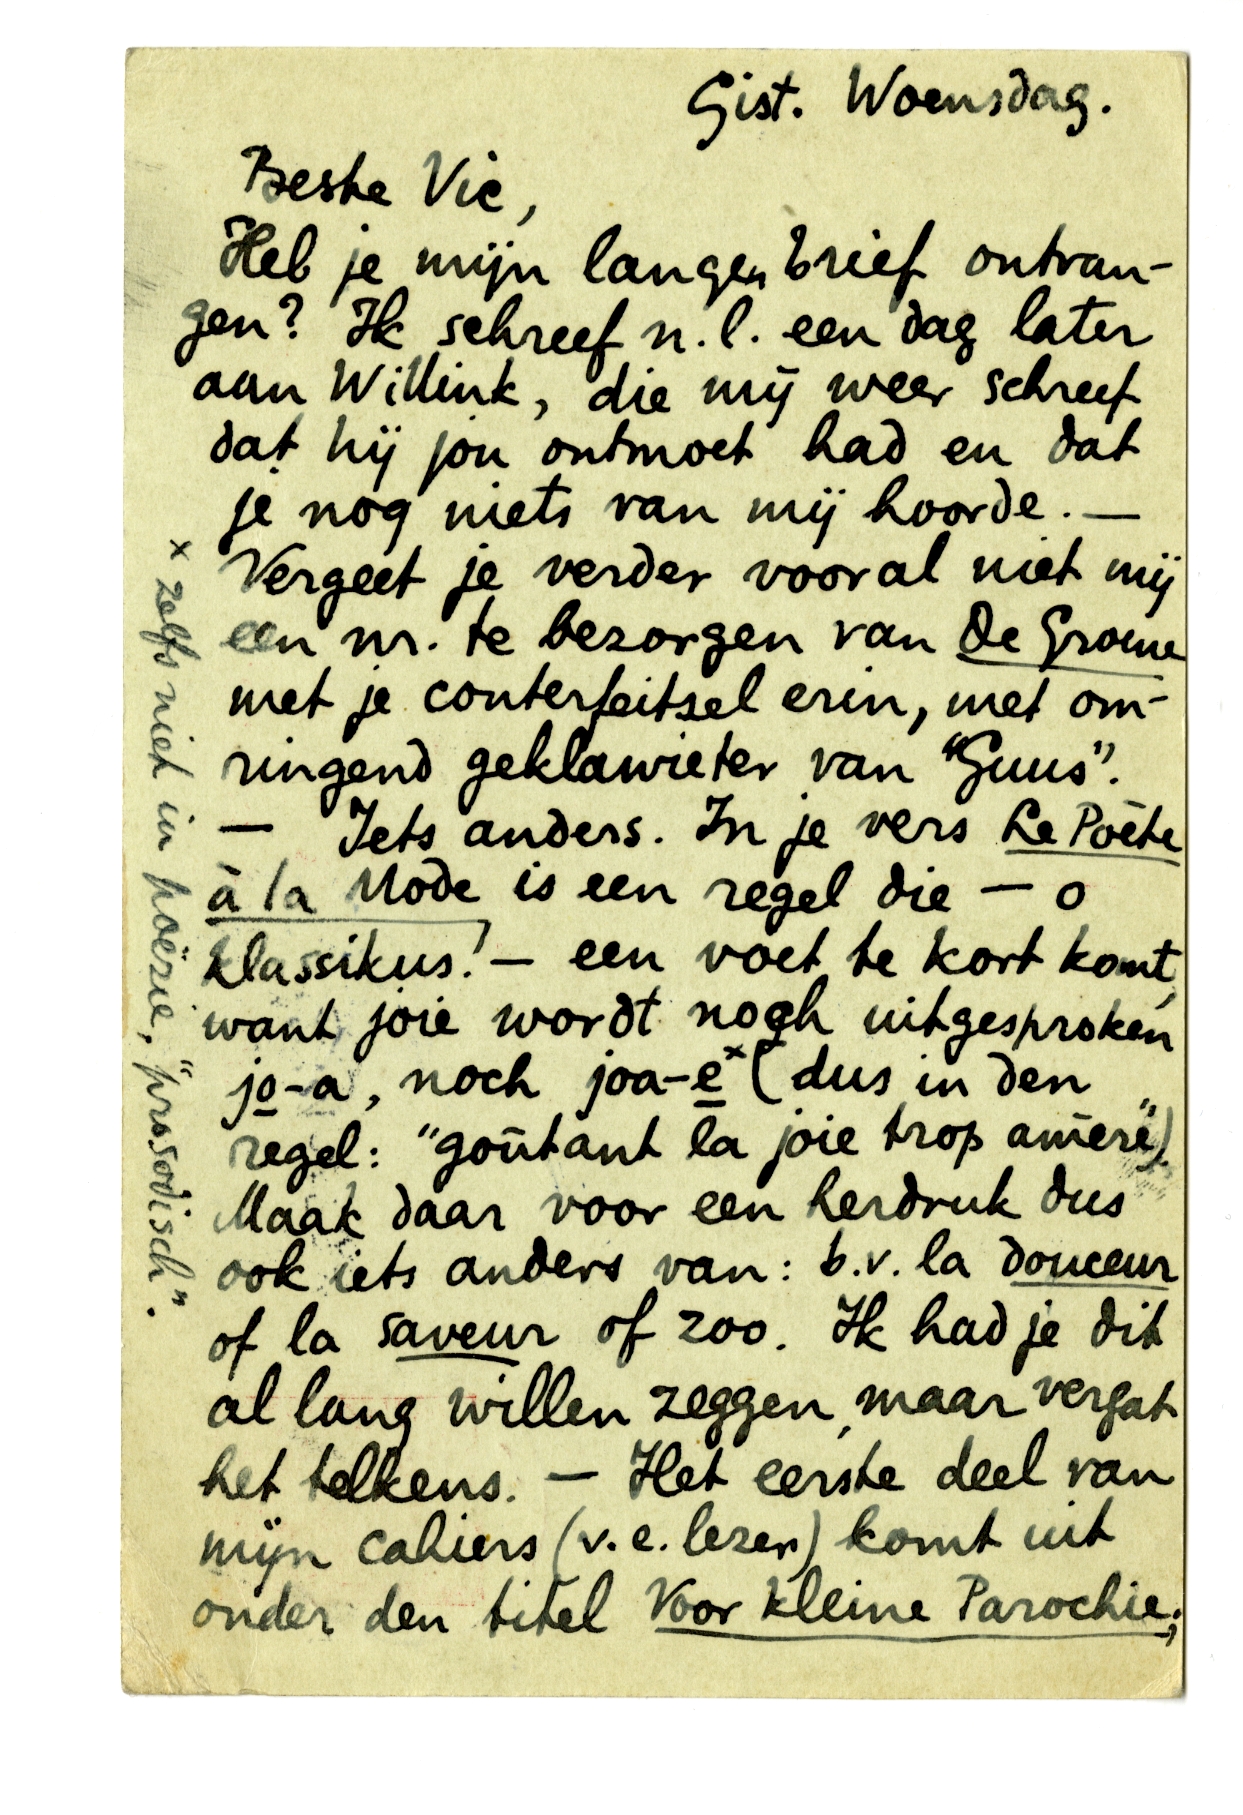 Gist. Woensdag.
Beste Vic,
Heb je mijn langen brief ontvan-
gen? Ik schreef n.l. een dag later
aan Willink, die mij weer schreef
dat hij jou ontmoet had en dat
je nog niets van mij hoorde. —
Vergeet je verder vooral niet mij
een nr. te bezorgen van De Groene
met je conterfeitsel erin, met om-
ringend geklawieter van "Guus".
— Iets anders. In je vers Le Poète
à la Mode is een regel die — o
klassikus! — een voet te kort komt,
want joie wordt noch uitgesproken
jo-a, noch joa-e x (dus in den
regel: "goûtant la joie trop amère")
Maak daar voor een herdruk dus
ook iets anders van: b.v. la douceur
of la saveur of zoo. Ik had je dit
al lang willen zeggen, maar vergat
het telkens. — Het eerste deel van
mijn cahiers (v.e. lezer) komt uit
onder den titel Voor kleine Parochie;
x zelfs niet in poëzie, "prosodisch".